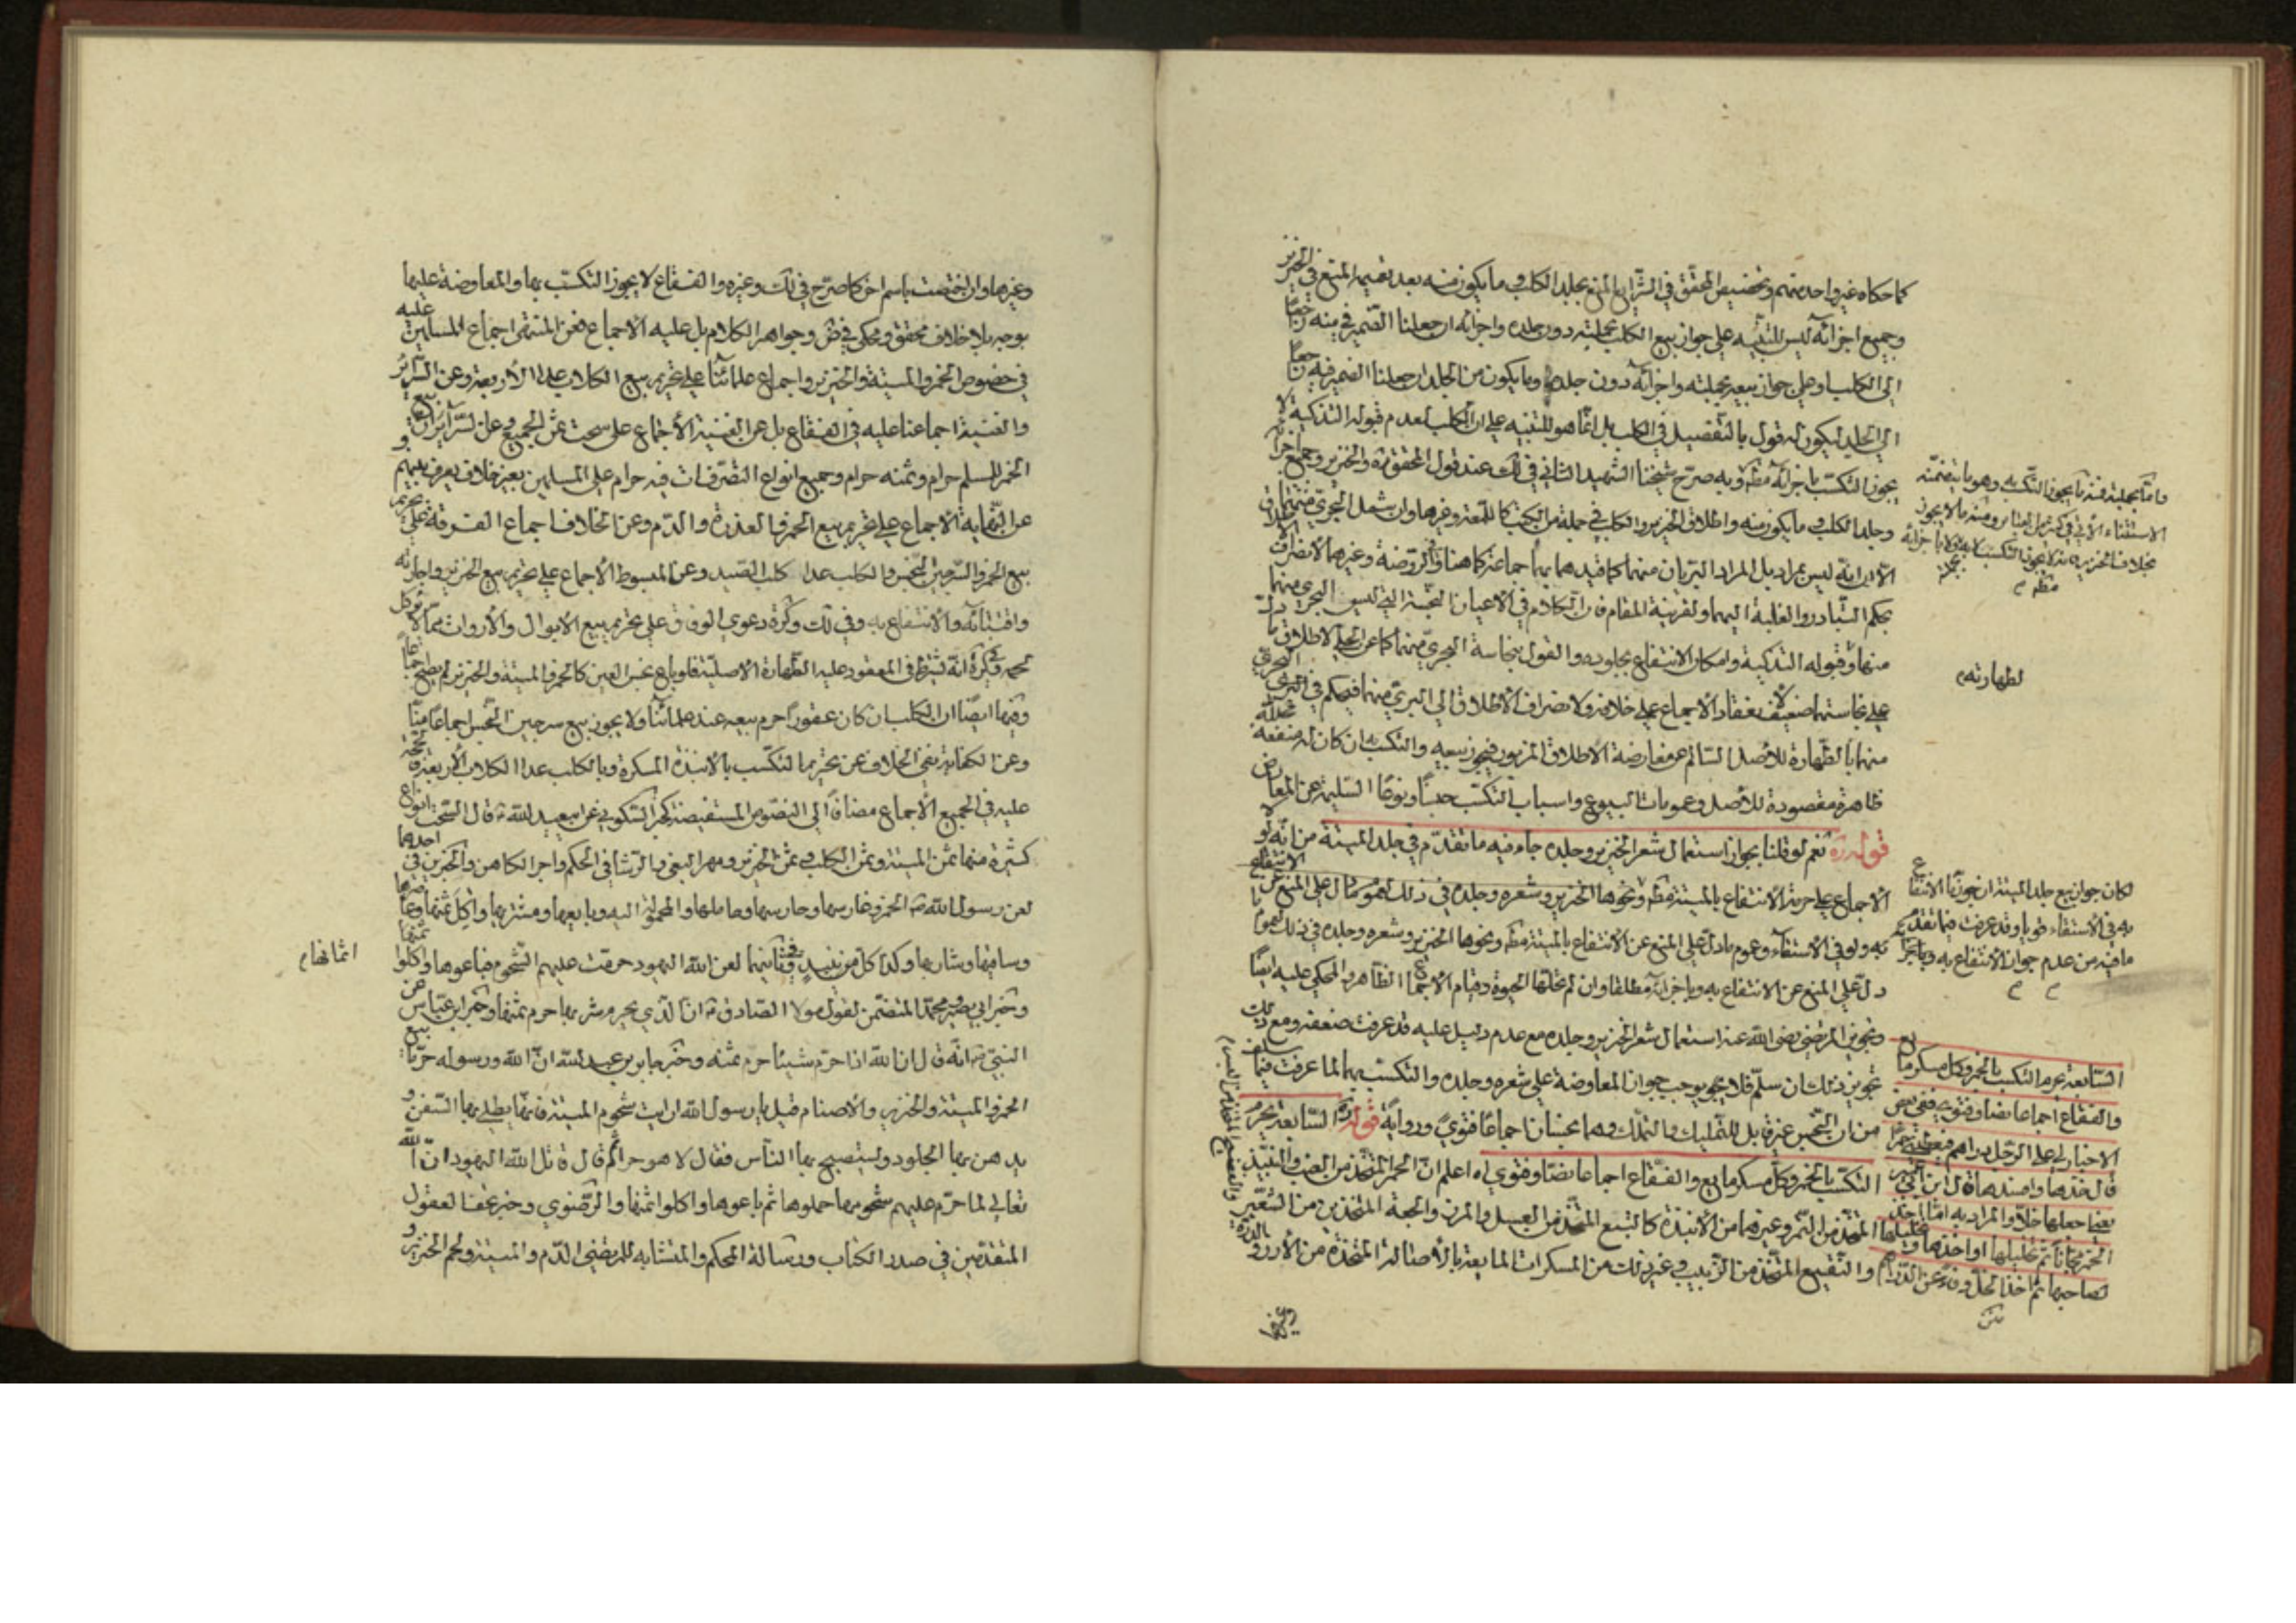 كما حكاه غير واحد منهم وتخصيص المحقق في الشرايع المنع بجلد الكلب وما يكون منه بعد تعميم المنع في الخنزير
وجميع اجزائه ليس للتنبيه على جواز بيع الكلب بجملته دون جلده واجزائه ان جعلنا الضمير في منه راجعا
الى الكلب او على جواز بيعه بجملته واجزائه دون جلده وما يكون من الجلد ان جعلنا الضمير فيه راجعا
الى الجلد ليكون له قول بالتفصيل في الكلب بل انما هو للتنبيه على ان الكلب لعدم قبوله التذكية لا
يجوز التكسب باجزائه مط وبه صرح شيخنا الشهيد الثاني في لك عند قول المحقق ره والخنزير وجميع اجزائه
وجلد الكلب وما يكون منه واطلاق الخنزير والكلب في جملة من الكتب كاللمعة وغيرها وان شمل البحري
الا انه ليس بمراد بل المراد البريان منهما كما قيدهما بهما جماعة كما هنا وفي الروضة وغيرها لانصراف الاطلاق
بحكم التبادر والغلبة اليهما ولقرينة المقام فان الكلام في الاعيان النجسة التي ليس البحري منهما
منها وقبوله التذكية وامكان الانتفاع بجلوده والقول بنجاسة البحري منهما كما عن الحلي لاطلاق
على نجاستهما ضعيف لانعقاد الاجماع على خلافه ولانصراف الاطلاق الى البري منهما فيحكم في البحري
منهما بالطهارة للاصل السالم عن معارضة الاطلاق المزبور فيجوز بيعه والتكسب به ان كان له منفعة محللة
ظاهرة مقصودة للاصل وعمومات البيوع واسباب التكسب جنسا ونوعا السليمة عن المعارض
قوله ره نعم لو قلنا بجواز استعمال شعر الخنزير وجلده جاء فيه ما تقدم في جلد الميتة من انه لو
الاجماع على حرمة الانتفاع بالميتة مط ونحوها الخنزير وشعره وجلده في ذلك
به ولو في الاستقاء وعموم ما دل على المنع عن الانتفاع بالميتة مط ونحوها الخنزير وشعره وجلده في ذلك
دل على المنع عن الانتفاع به وباجزائه مطلقا وان لم تحلها الحيوة وقيام الاجماع الظاهر والمحكي عليه ايضا
وتجويز المرتضى رضي الله عنه استعمال شعر الخنزير وجلده مع عدم دليل عليه قد عرفت ضعفه ومع ذلك
تجويز ذلك ان سلم فلا يوجب جواز المعاوضة على شعره وجلده والتكسب بهما لما عرفت فيما سلف
من ان النجس غير قابل للتمليك والتملك وهما نجسان اجماعا فتوى ورواية قوله ره السابعة يحرم
التكسب بالخمر وكل مسكر مايع والفقاع اجماعا نصا وفتوى اه اعلم ان الخمر المتخذ من العنب والنبيذ
المتخذ من التمر وغيرهما من الانبذة كالبتع المتخذ من العسل والمزر والجعة المتخذين من الشعير
والنقيع المتخذ من الزبيب وغير ذلك من المسكرات المايعة بالاصالة المتخذة من الارز والذرة
وغيرها
واما بجملته فمنه ما يجوز التكسب به وهو ما يتضمنه
لطهارته م
لكان جواز بيع جلد الميتة ان جوزنا الانتفاع
به في الاستقاء قويا وقد عرفت فيما تقدم
ما فيه من عدم جواز الانتفاع به
السابعة يحرم التكسب بالخمر وكل مسكر مايع
والفقاع اجماعا نصا وفتوى ففي بعض
الاخبار لي على الرجل دراهم فيعطيني خمرا
قال خذها وافسدها قال ابن ابي عمير
يعني اجعلها خلا والمراد به اما اخذ
الخمر مجانا ثم تخليلها او اخذها وتخليلها
لصاحبها ثم اخذ الخل وفاء عن الدراهم
متن
وغيرها وان اختصت باسم اخر كما صرح في لك وغيره والفقاع لا يجوز التكسب بها والمعاوضة عليها
بوجه بلا خلاف محقق ومحكي في ض وجواهر الكلام بل عليه الاجماع فعن المنتهى اجماع المسلمين عليه
في خصوص الخمر والميتة والخنزير واجماع علمائنا على تحريم بيع الكلاب عدا الاربعة وعن السرائر
والغنية اجماعنا عليه في الفقاع بل عن الغنية الاجماع على سحت ثمن الجميع وعن السرائر ان بيع
الخمر للمسلم حرام وثمنه حرام وجميع انواع التصرفات فيه حرام على المسلمين بغير خلاف يعرف بينهم و
عن النهاية الاجماع على تحريم بيع الخمر والعذرة والدم وعن الخلاف اجماع الفرقة على تحريم
بيع الخمر والسرجين النجس والكلب عدا كلب الصيد وعن المبسوط الاجماع على تحريم بيع الخنزير واجارته
واقتنائه والانتفاع به وفي لك وكرة دعوى الوفاق على تحريم بيع الابوال والارواث مما لا يؤكل
لحمه وفي كرة انه يشترط في المعقود عليه الطهارة الاصلية فلو باع نجس العين كالخمر والميتة والخنزير لم يصح اجماعا
وفيها ايضا ان الكلب ان كان عقورا حرم بيعه عند علمائنا ولا يجوز بيع سرجين النجس اجماعا منا
وعن الكفاية نفي الخلاف عن تحريم التكسب بالانبذة المسكرة وبالكلب عدا الكلاب الاربعة
عليه في الجميع الاجماع مضافا الى النصوص المستفيضة كخبر السكوني عن ابي عبد الله ع قال السحت انواع
كثيرة منها ثمن الميتة وثمن الكلب وثمن الخنزير ومهر البغي والرشا في الحكم واجر الكاهن والخبرين في احدهما
لعن رسول الله ص الخمر وغارسها وحارسها وحاملها والمحمولة اليه وبايعها ومشتريها واكل ثمنها وعاصرها
وساقيها وشاربها وكذا كل من نبيذ وفي ثانيهما لعن الله اليهود حرمت عليهم الشحوم فباعوها واكلوا ثمنها
اثمانها م
وخبر ابي بصير ومحمد المتضمن لقول مولانا الصادق ع ان الذي يحرم شربها حرم ثمنها وخبر ابن عباس عن
النبي ص انه قال ان الله اذا حرم شيئا حرم ثمنه وخبر جابر بن عبد الله ان الله ورسوله حرما بيع
الخمر والميتة والخنزير والاصنام قيل يا رسول الله ارايت شحوم الميتة فانها يطلى بها السفن و
يدهن بها الجلود ويستصبح بها الناس فقال لا هو حرام ثم قال قاتل الله اليهود ان الله
تعالى لما حرم عليهم شحومها جملوها ثم باعوها واكلوا اثمنها والرضوي وخبر تحف العقول
المتقدمين في صدر الكتاب ورسالة المحكم والمتشابه للمرتضى الدم والميتة ولحم الخنزير و